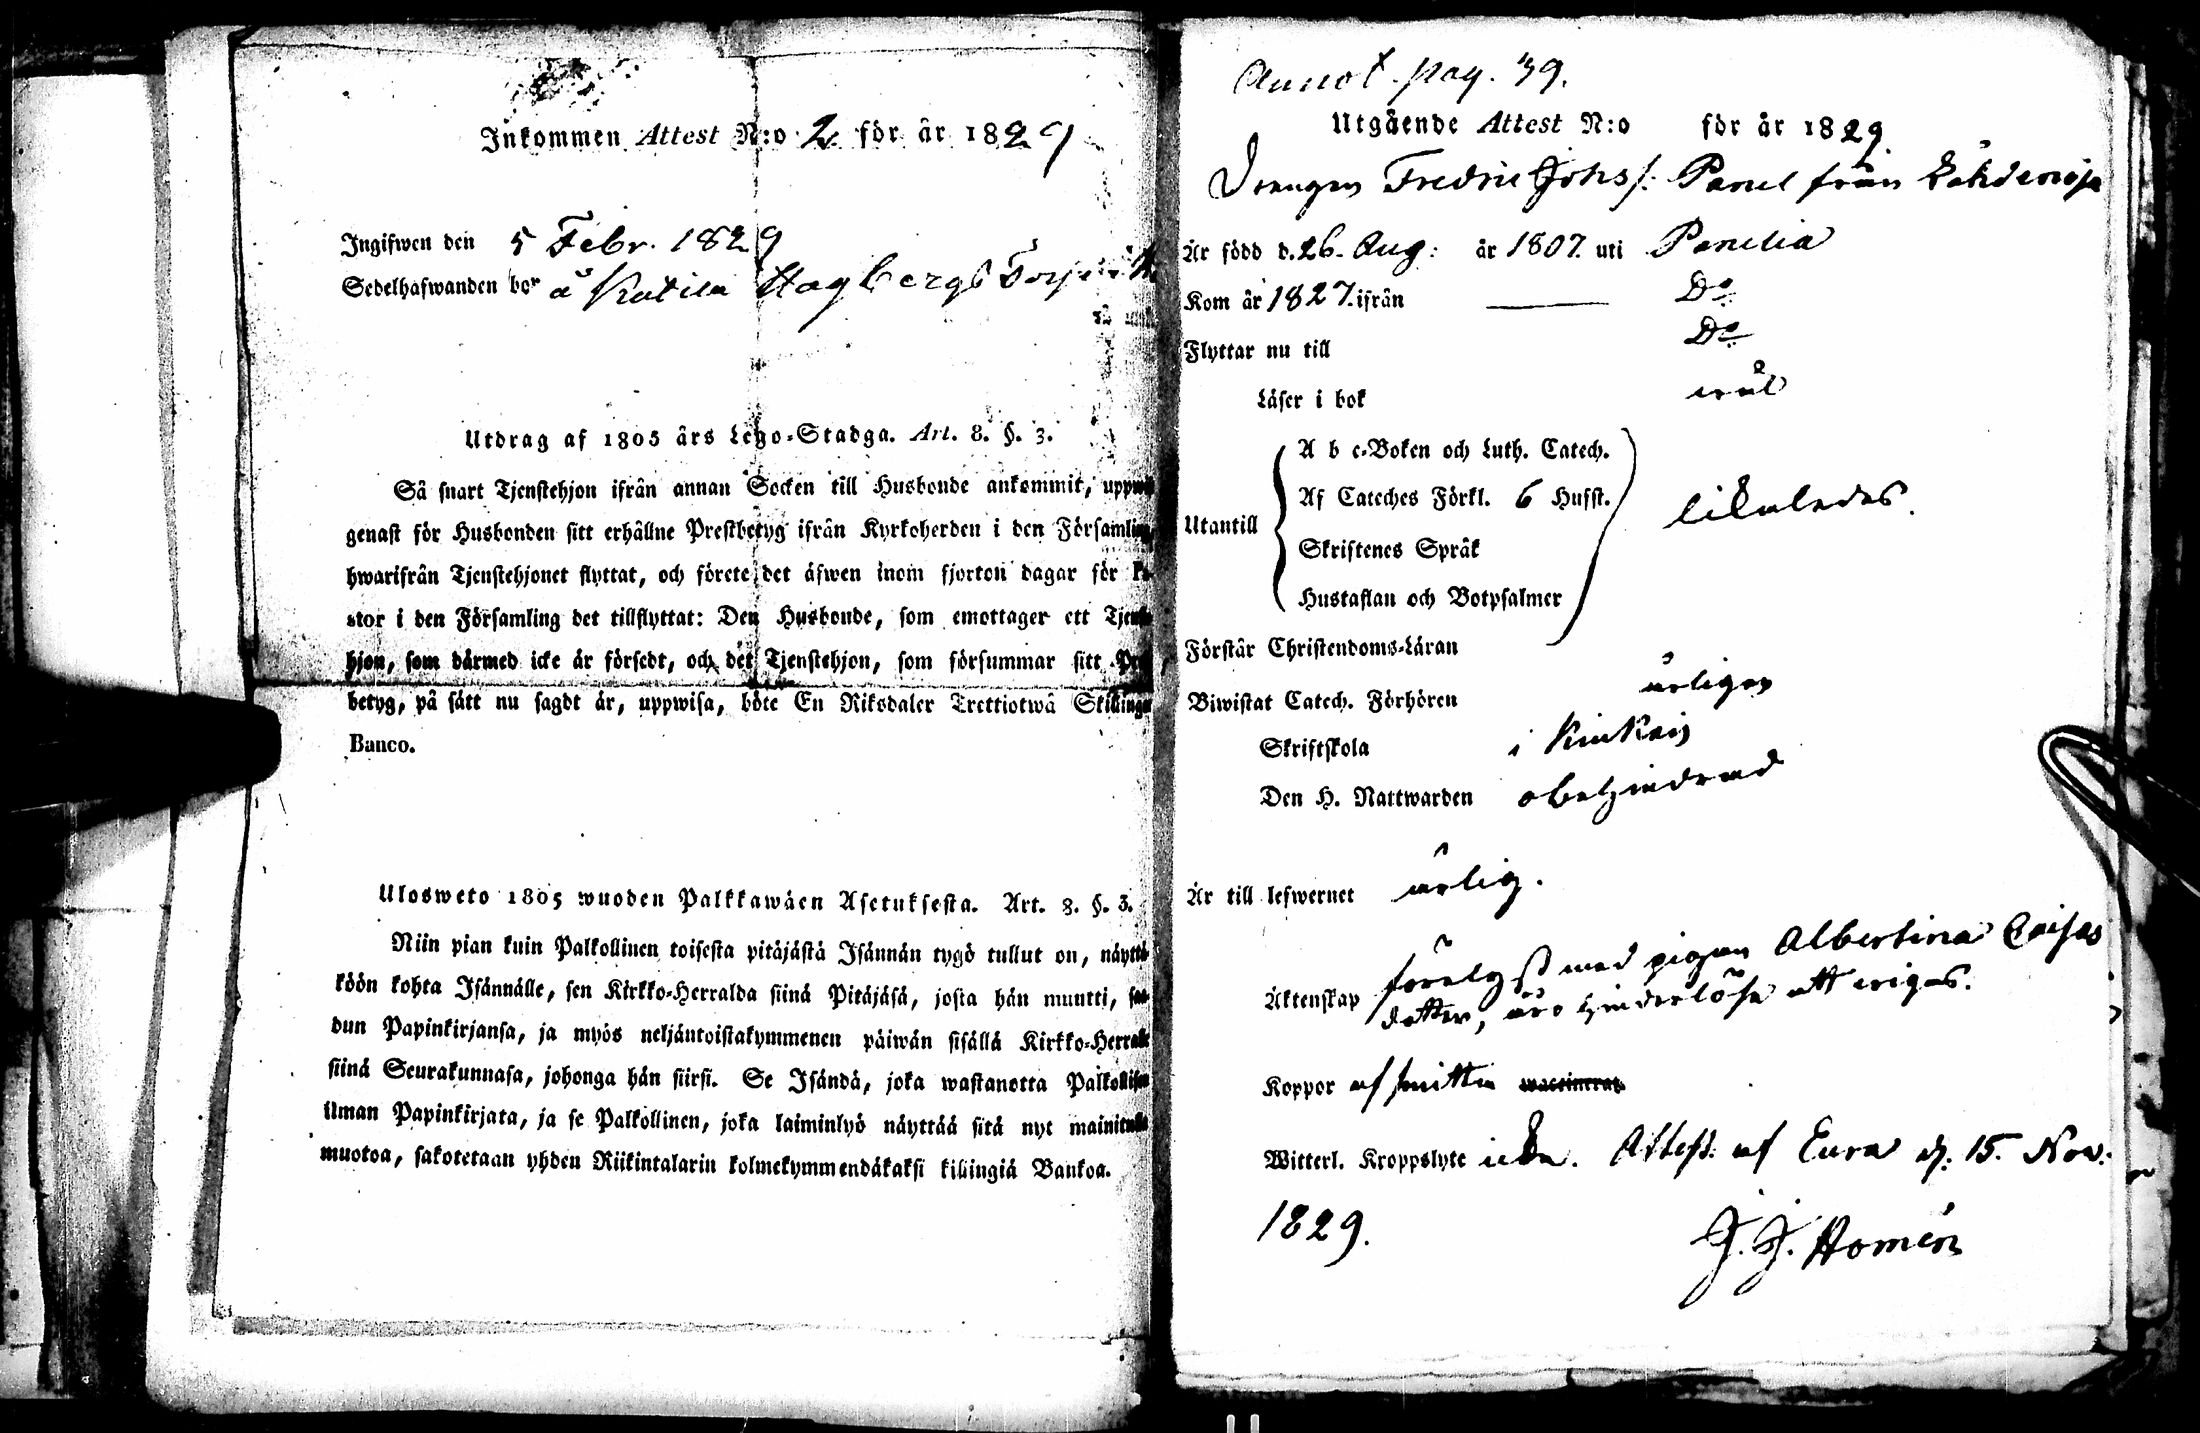 Inkommen Attest N:o 2. för år 1829
Ingifwen den 5 Febr. 1829
Sedelhafwanden bor å Kutila Hagbergs Torp
Utdrag af 1805 års Lego-Stadga. Art. 8. §. 3.
Så snart Tjenstehjon ifrån annan Socken till Husbonde ankommit, uppwi
genast för Husbonden sitt erhållne Prestbetyg ifrån Kyrkoherden i den Församling
hwarifrån Tjenstehjonet flyttat, och förete det äfwen inom fjorton dagar för Pa-
stor i den Församling det tillflyttat: Den Husbonde, som emottager ett Tjenste
hjon, som därmed icke är försedt, och det Tjenstehjon, som försummar sitt Pre
betyg, på sätt nu sagdt är, uppwisa, böte En Riksdaler Trettiotwå Skillingar
Banco.
Ulosweto 1805 wuoden Palkkawäen Asetuksesta. Art. 8. §. 3.
Niin pian kuin Palkollinen toisesta pitäjästä Isännän tygö tullut on, näyttä
köön kohta Isännälle, sen Kirkko-Herralda siinä Pitäjäsä, josta hän muutti, saa-
dun Papinkirjansa, ja myös neljäntoistakymmenen päiwän sisällä Kirkko-Herralle
siinä Seurakunnasa, johonga hän siirsi. Se Isändä, joka wastanotta Palkollisen
ilman Papinkirjata, ja se Palkollinen, joka laiminlyö näyttää sitä nyt mainitulla
muotoa, sakotetaan yhden Riikintalarin kolmekymmendäkaksi killingiä Bankoa.
Annot. pag. 39.
Utgående Attest N:o för år 1829.
Drengen Fredric Johs /: Panel från
Är född d. 26. Aug: år 1807. uti Panelia
Kom år 1827. ifrån — Do
Flyttar nu till Do
Läser i bok wäl
A b c-Boken och Luth. Catech.
Af Cateches Förkl. 6 Hufst.
Utantill likaledes.
Skriftenes Språk
Hustaflan och Botpsalmer
Förstår Christendoms-Läran
Biwistat Catech. Förhören årligen
Skriftskola i Kiukais
Den H. Nattwarden obehindrad
Är till lefwernet ärlig.
Äktenskap förelyst med pigan Albertina Caisas
dotter, äro hinderlöse att wigas.
Koppor af smitta waccinerat
Witterl. Kroppslyte icke. Attest. af Eura d. 15. Nov.
1829.
J. J. Homén